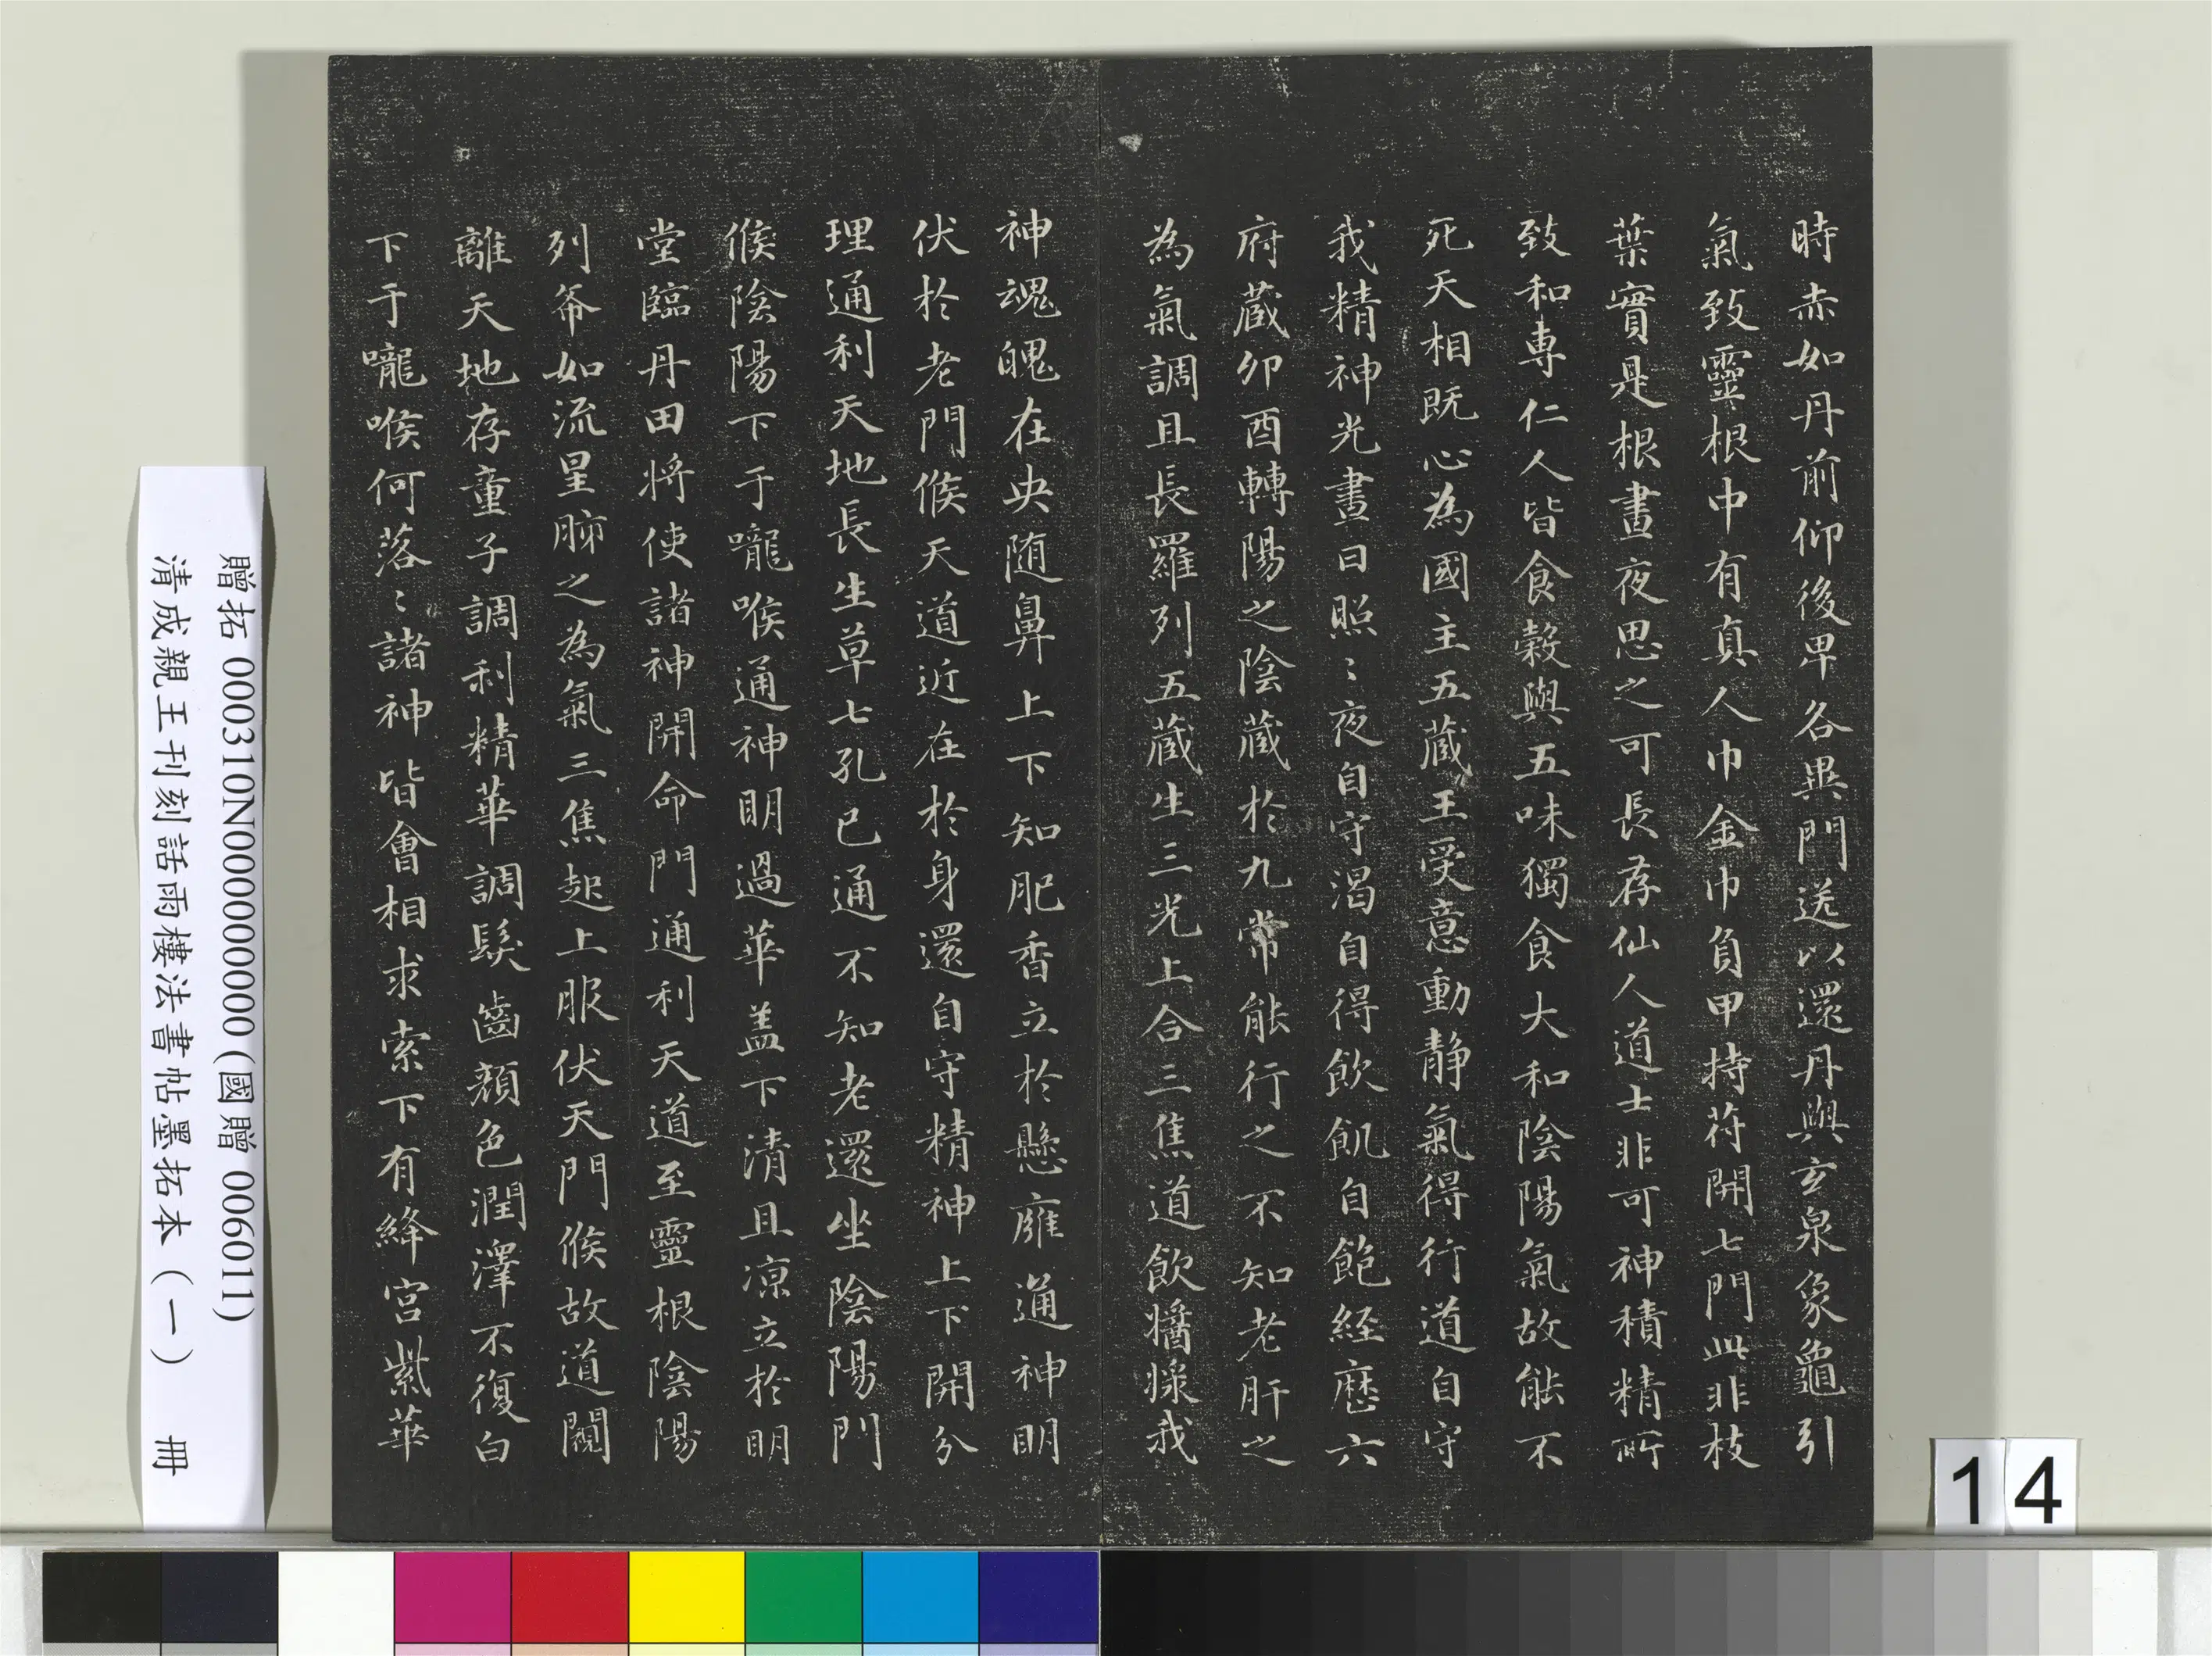 時赤如丹前仰後卑各異門送以還丹與玄泉象龜引
氣致靈根中有真人巾金巾負甲持苻開七門此非枝
葉實是根晝夜思之可長存仙人道士非可神積精所
致和專仁人皆食穀與五味獨食大和陰陽氣故能不
死天相既心為國主五蔵王受意動静氣得行道自守
我精神光晝日照〻夜自守渴自得飲飢自飽經歷六
府蔵卯酉轉陽之陰蔵於九常能行之不知老肝之
為氣調且長羅列五蔵生三光上合三焦道飲醬㵀我
神魂魄在央随鼻上下知肥香立於懸廱通神明
伏於老門候天道近在於身還自守精神上下開分
理通利天地長生草七孔已通不知老還坐陰陽門
候陰陽下于嚨喉通神明過華盖下清且凉立於明
堂臨丹田将使諸神開命門通利天道至靈根陰陽
列布如流星肺之為氣三焦起上服伏天門候故道闚
離天地存童子調利精華調髮齒顔色潤澤不復白
下于嚨喉何落〻諸神皆會相求索下有絳宮紫華
贈拓 000310N000000000 (國贈 006011)
清成親王刊刻話雨樓法書帖墨拓本(一) 冊
14